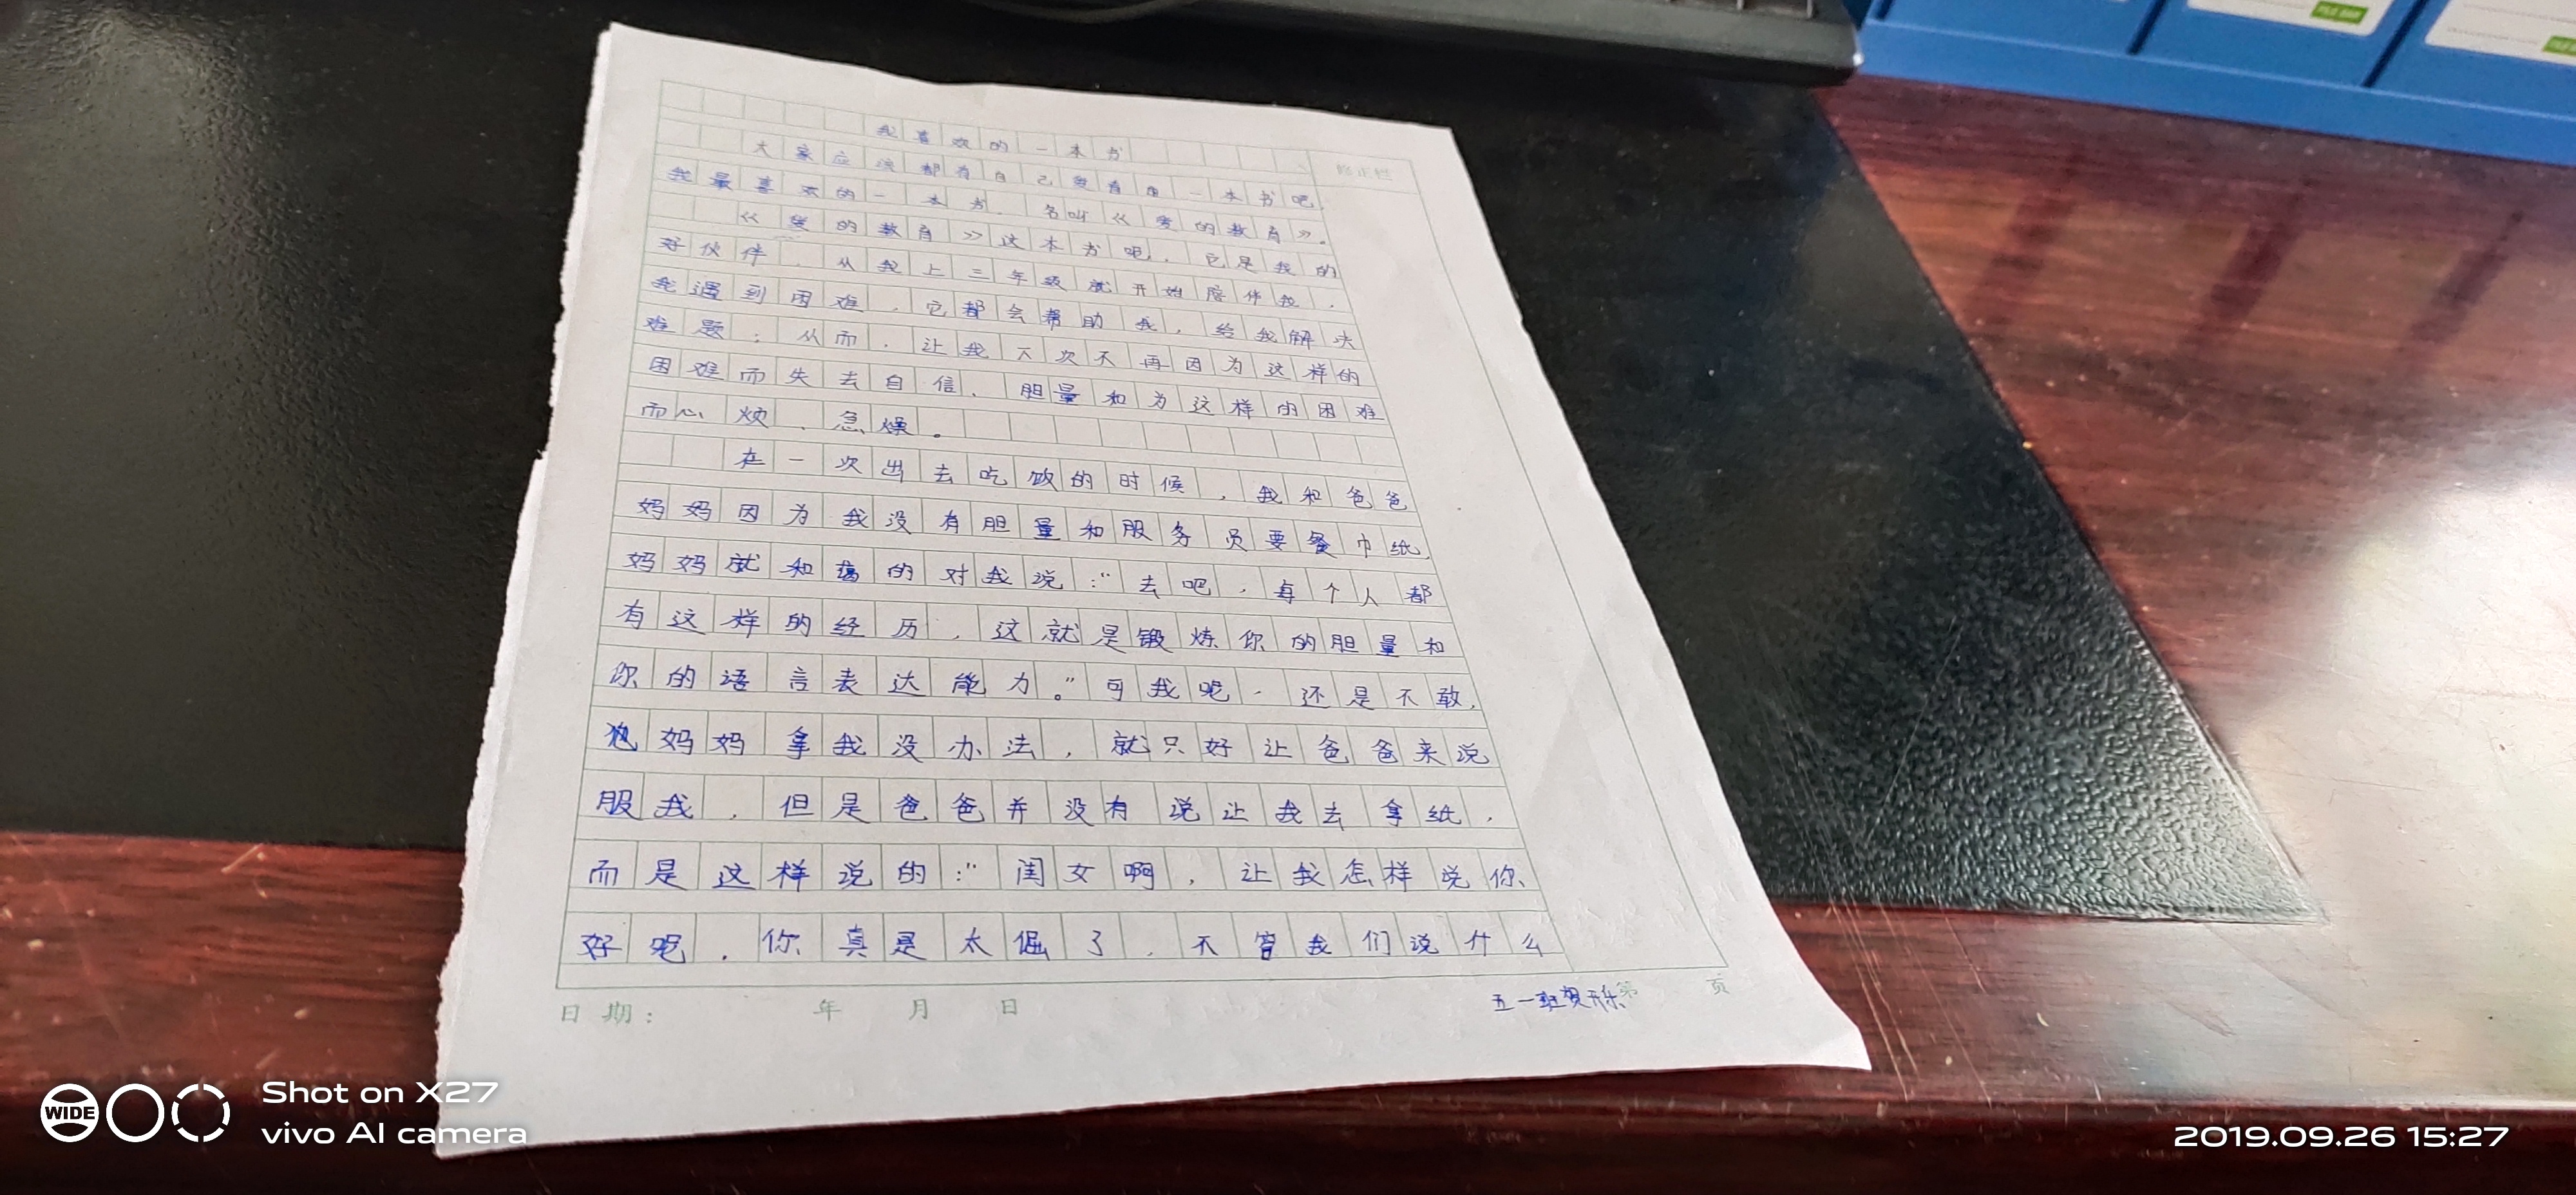 我喜欢的一本书
大家应该都有自己爱看的一本书吧,
我最喜欢的一本书,名叫《爱的教育》。
《爱的教育》这本书吧,它是我的
好伙伴,从我上三年级就开始陪伴我,
我遇到困难,它都会帮助我,给我解决
难题;从而,让我下次不再因为这样的
困难而失去自信、胆量和为这样的困难
而心烦、急燥。
在一次出去吃饭的时候,我和爸爸
妈妈因为我没有胆量和服务员要餐巾纸,
妈妈就和蔼的对我说:“去吧,每个人都
有这样的经历,这就是锻炼你的胆量和
你的语言表达能力。”可我呢,还是不敢,
妈妈拿我没办法,就只好让爸爸来说
服我,但是爸爸并没有说让我去拿纸,
而是这样说的:“闺女啊,让我怎样说你
好呢,你真是太倔了,不管我们说什么
修正栏
日期: 年 月 日
五一班贺
第 页
WIDE
Shot on X27
vivo AI camera
2019.09.26 15:27